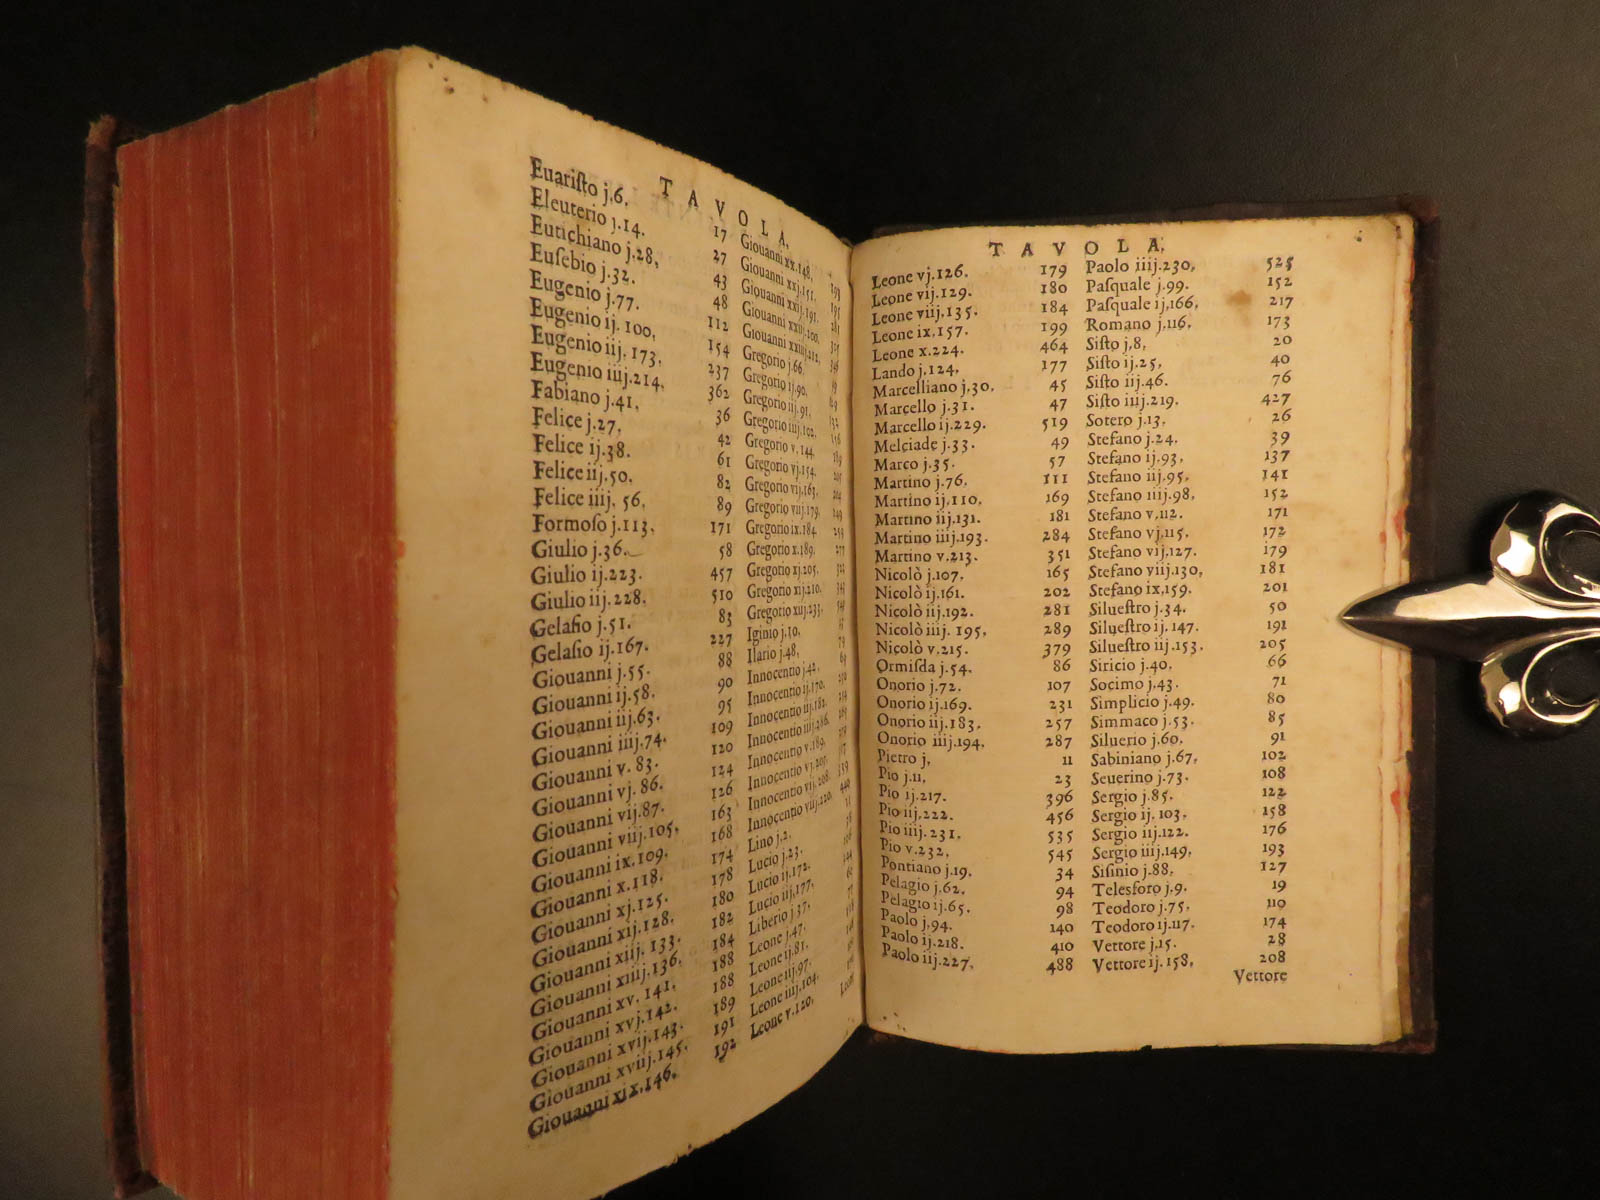 TAVOLA.
Euariſto j.6. 17
Eleuterio j.14. 27
Eutichiano j.28, 43
Euſebio j.32. 48
Eugenio j.77. 112
Eugenio ij. 100, 154
Eugenio iij. 173, 237
Eugenio iiij.214, 362
Fabiano j.41, 36
Felice j.27, 42
Felice ij.38. 61
Felice iij.50, 82
Felice iiij. 56, 89
Formoſo j.113, 171
Giulio j.36. 58
Giulio ij.223. 457
Giulio iij.228, 510
Gelaſio j.51. 83
Gelaſio ij.167. 227
Giouanni j.55. 88
Giouanni ij.58. 90
Giouanni iij.63. 95
Giouanni iiij.74. 109
Giouanni v. 83. 120
Giouanni vj. 86. 124
Giouanni vij.87. 126
Giouanni viij.105, 163
Giouanni ix.109. 168
Giouanni x.118. 174
Giouanni xj.125. 178
Giouanni xij.128. 180
Giouanni xiij. 133. 182
Giouanni xiiij.136. 184
Giouanni xv. 141. 188
Giouanni xvj.142. 188
Giouanni xvij.143. 189
Giouanni xviij.145. 191
Giouanni xix.146. 192
Giouanni xx.148.
Giouanni xxj.151.
Giouanni xxij.191.
Giouanni xxiij.200,
Giouanni xxiiij.212,
Gregorio j.66.
Gregorio ij.90.
Gregorio iij.91,
Gregorio iiij.102.
Gregorio v.144.
Gregorio vj.154.
Gregorio vij.163.
Gregorio viij.179.
Gregorio ix.184.
Gregorio x.189.
Gregorio xj.205.
Gregorio xij.210.
Gregorio xiij.233,
Iginio j.10.
Ilario j.48,
Innocentio j.42.
Innocentio ij.170.
Innocentio iij.182.
Innocentio iiij.186.
Innocentio v.189.
Innocentio vj.207.
Innocentio vij.208.
Innocentio viij.220.
Lino j.2.
Lucio j.23.
Lucio ij.172.
Lucio iij.177,
Liberio j.37.
Leone j.47.
Leone ij.81.
Leone iij.97.
Leone iiij.104.
Leone v.120,
Leone
TAVOLA,
Leone vj.126. 179
Leone vij.129. 180
Leone viij.135. 184
Leone ix,157. 199
Leone x.224. 464
Lando j.124, 177
Marcelliano j,30, 45
Marcello j.31. 47
Marcello ij.229. 519
Melciade j.33. 49
Marco j.35. 57
Martino j.76, 111
Martino ij,110, 169
Martino iij,131. 181
Martino iiij.193. 284
Martino v.213. 351
Nicolò j.107, 165
Nicolò ij.161. 202
Nicolò iij.192. 281
Nicolò iiij. 195, 289
Nicolò v.215. 379
Ormiſda j.54. 86
Onorio j.72. 107
Onorio ij.169. 231
Onorio iij.183, 257
Onorio iiij.194, 287
Pietro j, 11
Pio j.11, 23
Pio ij.217. 396
Pio iij,222. 456
Pio iiij.231, 535
Pio v.232, 545
Pontiano j.19. 34
Pelagio j.62, 94
Pelagio ij.65. 98
Paolo j.94. 140
Paolo ij.218. 410
Paolo iij.227, 488
Paolo iiij.230, 525
Paſquale j.99. 152
Paſquale ij,166, 217
Romano j,116, 173
Siſto j,8, 20
Siſto ij,25, 40
Siſto iij.46. 76
Siſto iiij.219, 427
Sotero j.13, 26
Stefano j.24, 39
Stefano ij.93, 137
Stefano iij.95, 141
Stefano iiij.98, 152
Stefano v.112. 171
Stefano vj.115, 172
Stefano vij,127. 179
Stefano viij.130, 181
Stefano ix,159. 201
Silueſtro j.34. 50
Silueſtro ij.147. 191
Silueſtro iij.153. 205
Siricio j.40. 66
Socimo j.43. 71
Simplicio j.49. 80
Simmaco j.53. 85
Siluerio j.60, 91
Sabiniano j.67, 102
Seuerino j.73. 108
Sergio j.85. 122
Sergio ij. 103, 158
Sergio iij.122. 176
Sergio iiij.149, 193
Siſinio j.88. 127
Telesforo j.9. 19
Teodoro j.75, 110
Teodoro ij.117. 174
Vettore j.15. 28
Vettore ij.158, 208
Vettore